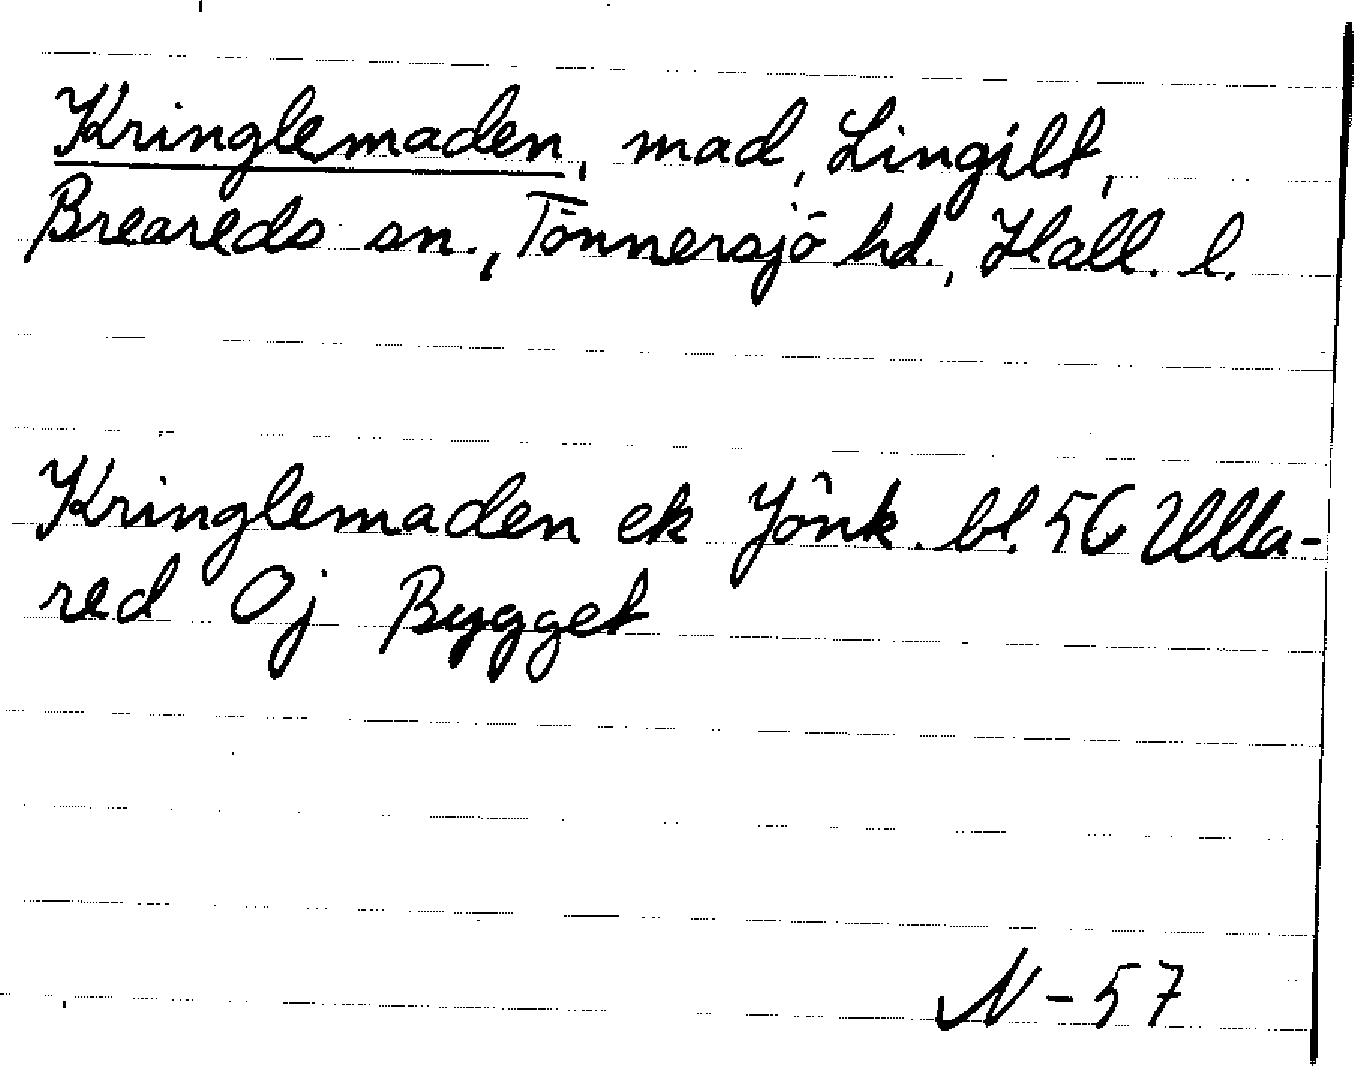 Kringlemaden, mad, Lingilt,
Breareds sn., Tönnersjö hd., Hall. l.
Kringlemaden ek Jönk. bl. 56 Ulla-
red Oj Bygget
N-57